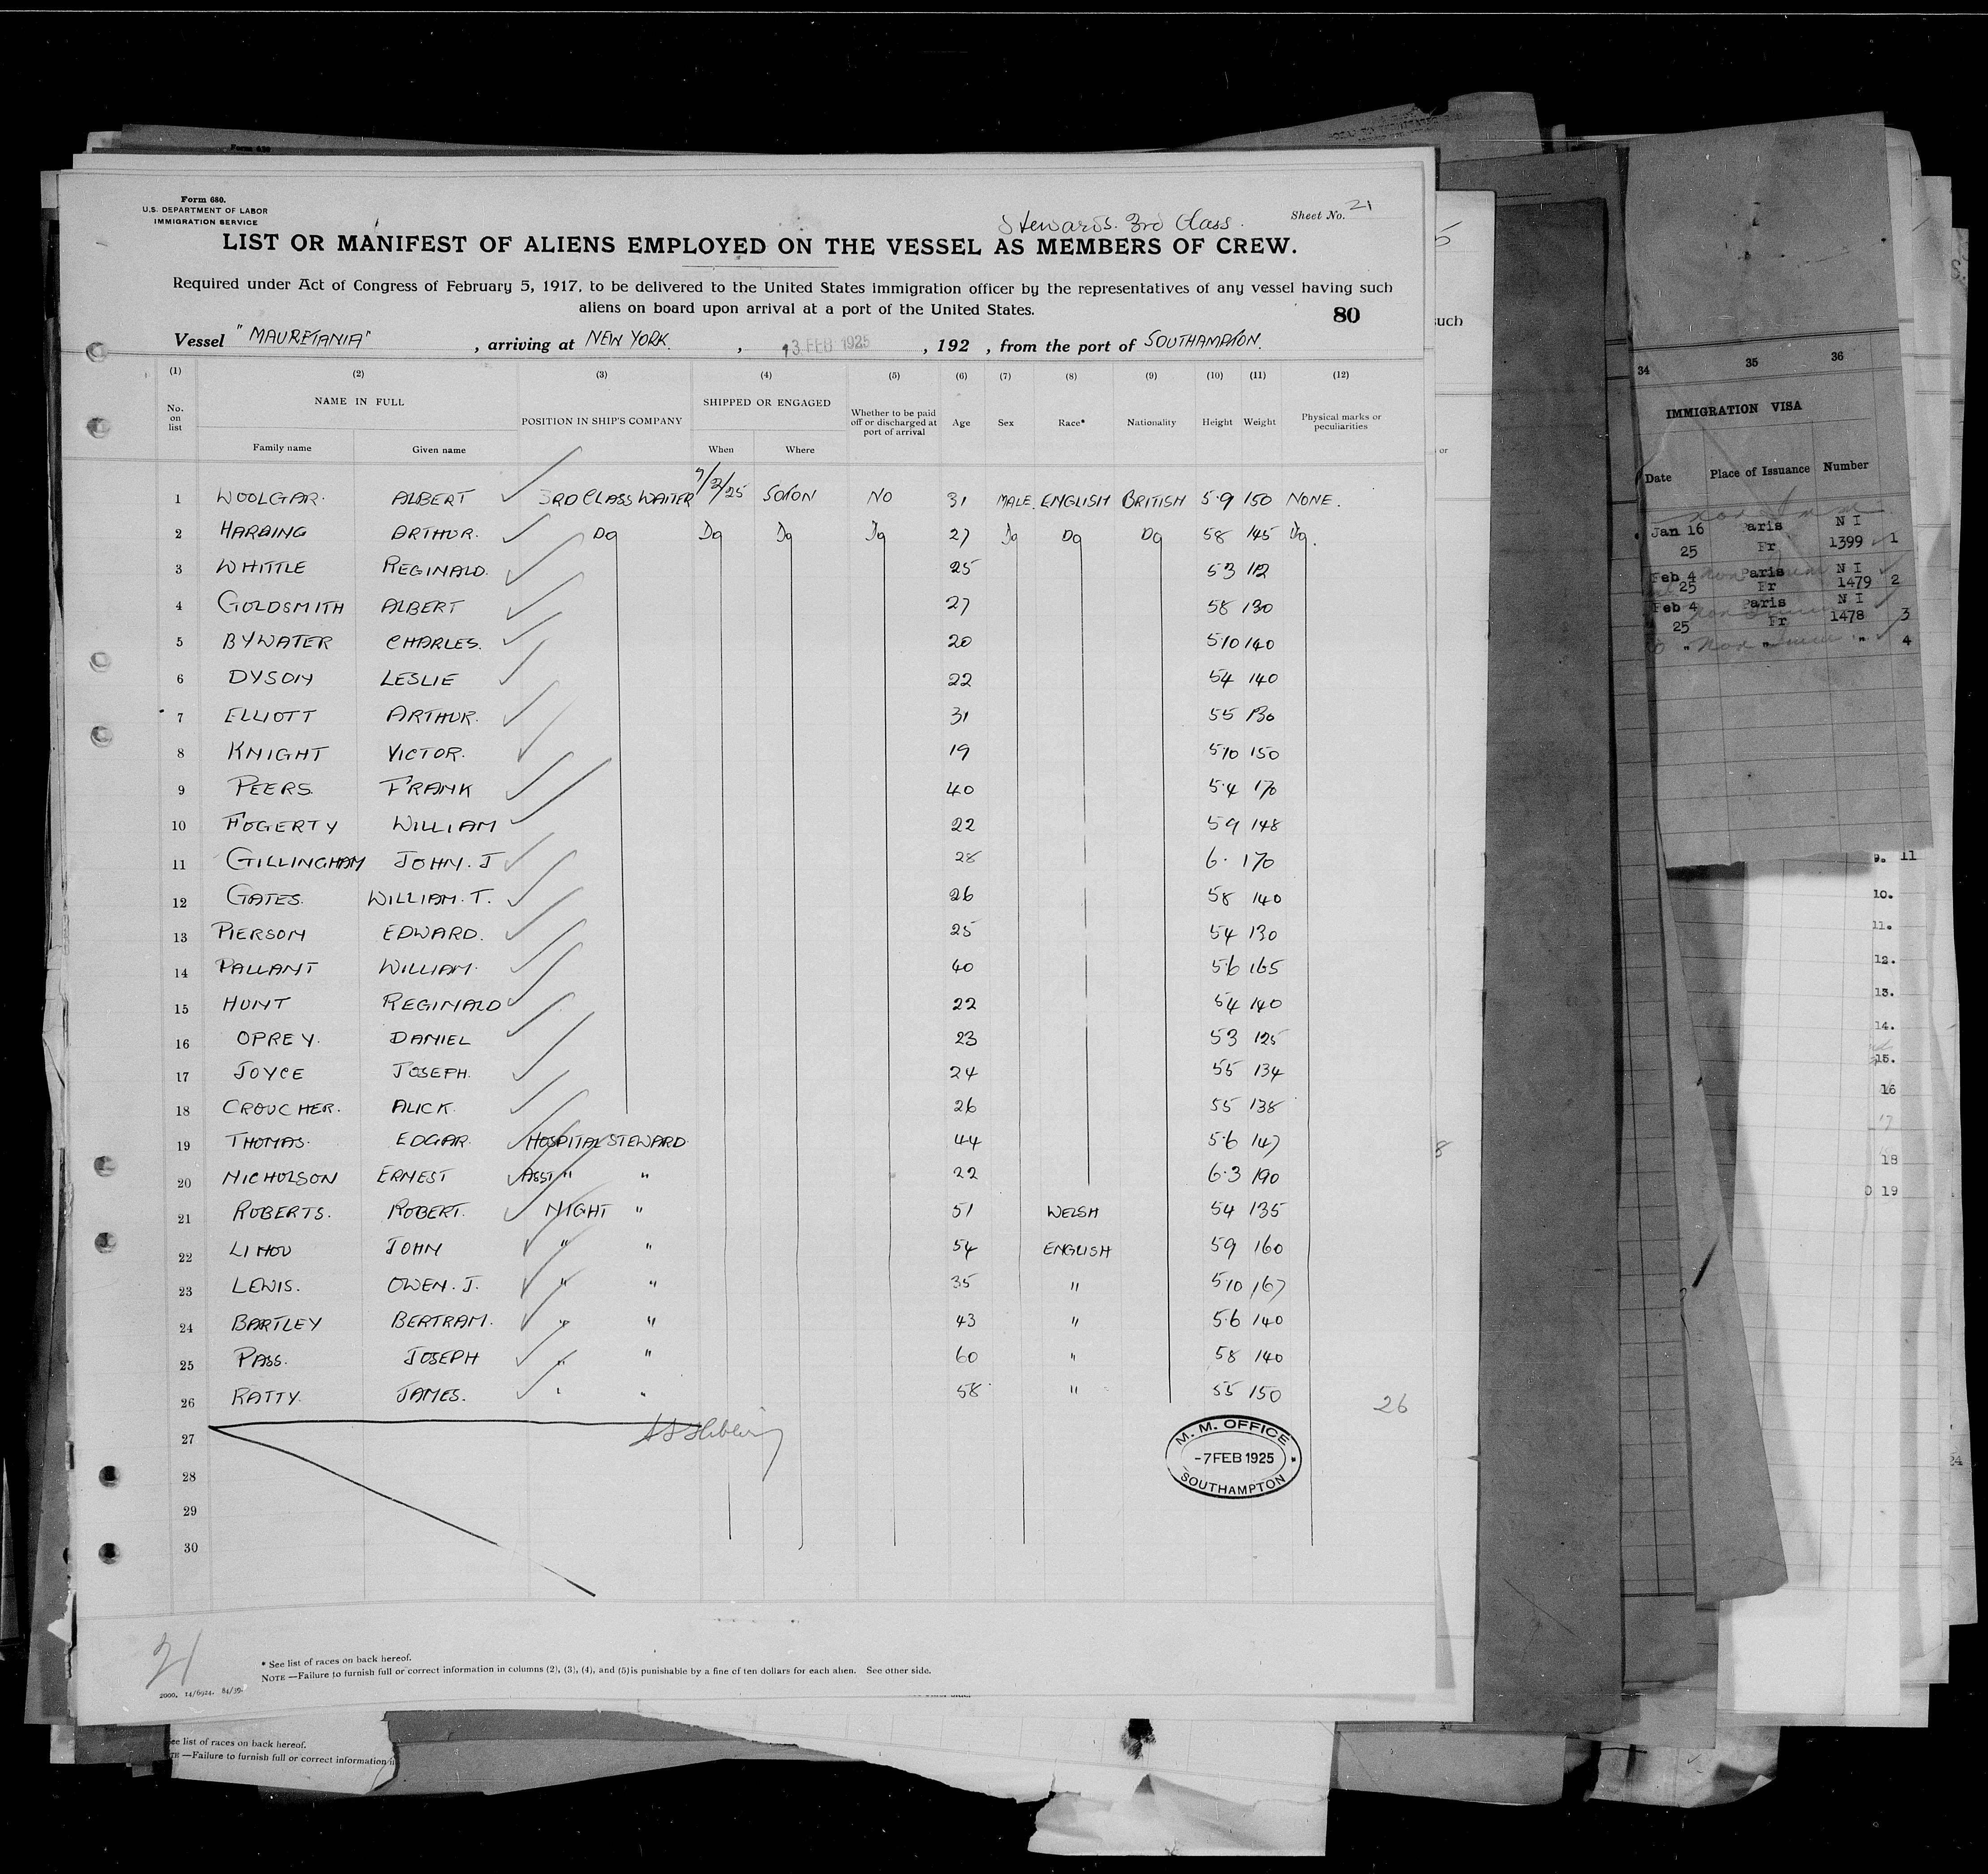 Form 680.
U.S. DEPARTMENT OF LABOR
IMMIGRATION SERVICE
Stewards. 3rd Class.
Sheet No. 21
LIST OR MANIFEST OF ALIENS EMPLOYED ON THE VESSEL AS MEMBERS OF CREW.
Required under Act of Congress of February 5, 1917, to be delivered to the United States immigration officer by the representatives of any vessel having such
aliens on board upon arrival at a port of the United States.
80
Vessel "MAURETANIA" , arriving at NEW YORK. , 13 FEB 1925 , 192 , from the port of SOUTHAMPTON.
(1) (2) (3) (4) (5) (6) (7) (8) (9) (10) (11) (12)
No. on list
NAME IN FULL
Family name Given name
POSITION IN SHIP'S COMPANY
SHIPPED OR ENGAGED
When Where
Whether to be paid off or discharged at port of arrival
Age Sex Race* Nationality Height Weight Physical marks or peculiarities
1 WOOLGAR. ALBERT 3RD CLASS WAITER 7/2/25 SOTON NO 31 MALE. ENGLISH BRITISH 5.9 150 NONE.
2 HARDING ARTHUR. Do Do Do Do 27 Do Do Do 58 145 Do.
3 WHITTLE REGINALD. 25 53 112
4 GOLDSMITH ALBERT 27 58 130
5 BYWATER CHARLES. 20 510 140
6 DYSON LESLIE 22 54 140
7 ELLIOTT ARTHUR. 31 55 130
8 KNIGHT VICTOR. 19 510 150
9 PEERS. FRANK 40 5.4 170
10 FOGERTY WILLIAM 22 59 148
11 GILLINGHAM JOHN. J 28 6. 170
12 GATES. WILLIAM. T. 26 58 140
13 PIERSON EDWARD. 25 54 130
14 PALLANT WILLIAM. 40 5.6 165
15 HUNT REGINALD 22 54 140
16 OPREY. DANIEL 23 53 125
17 JOYCE JOSEPH. 24 55 134
18 CROUCHER. ALICK. 26 55 138
19 THOMAS. EDGAR. HOSPITAL STEWARD. 44 5.6 147
20 NICHOLSON ERNEST ASST " " 22 6.3 190
21 ROBERTS. ROBERT. NIGHT " 51 WELSH 54 135
22 LIHOU JOHN " " 54 ENGLISH 59 160
23 LEWIS. OWEN. J. " " 35 " 510 167
24 BARTLEY BERTRAM. " " 43 " 5.6 140
25 PASS. JOSEPH " " 60 " 58 140
26 RATTY. JAMES. " " 58 " 55 150
26
27
28
29
30
M. M. OFFICE
-7 FEB 1925
SOUTHAMPTON
21
* See list of races on back hereof.
NOTE —Failure to furnish full or correct information in columns (2), (3), (4), and (5) is punishable by a fine of ten dollars for each alien. See other side.
2000. 14/6924. 84/39.
see list of races on back hereof.
TE —Failure to furnish full or correct information
such
or
34 35 36
IMMIGRATION VISA
Date Place of Issuance Number
Jan 16 25 Paris Fr N I 1399 1
Feb 4 25 Paris Fr N I 1479 2
Feb 4 25 Paris Fr N I 1478 3
" " " 4
9. 11
10.
11.
12.
13.
14.
15.
16
18
19